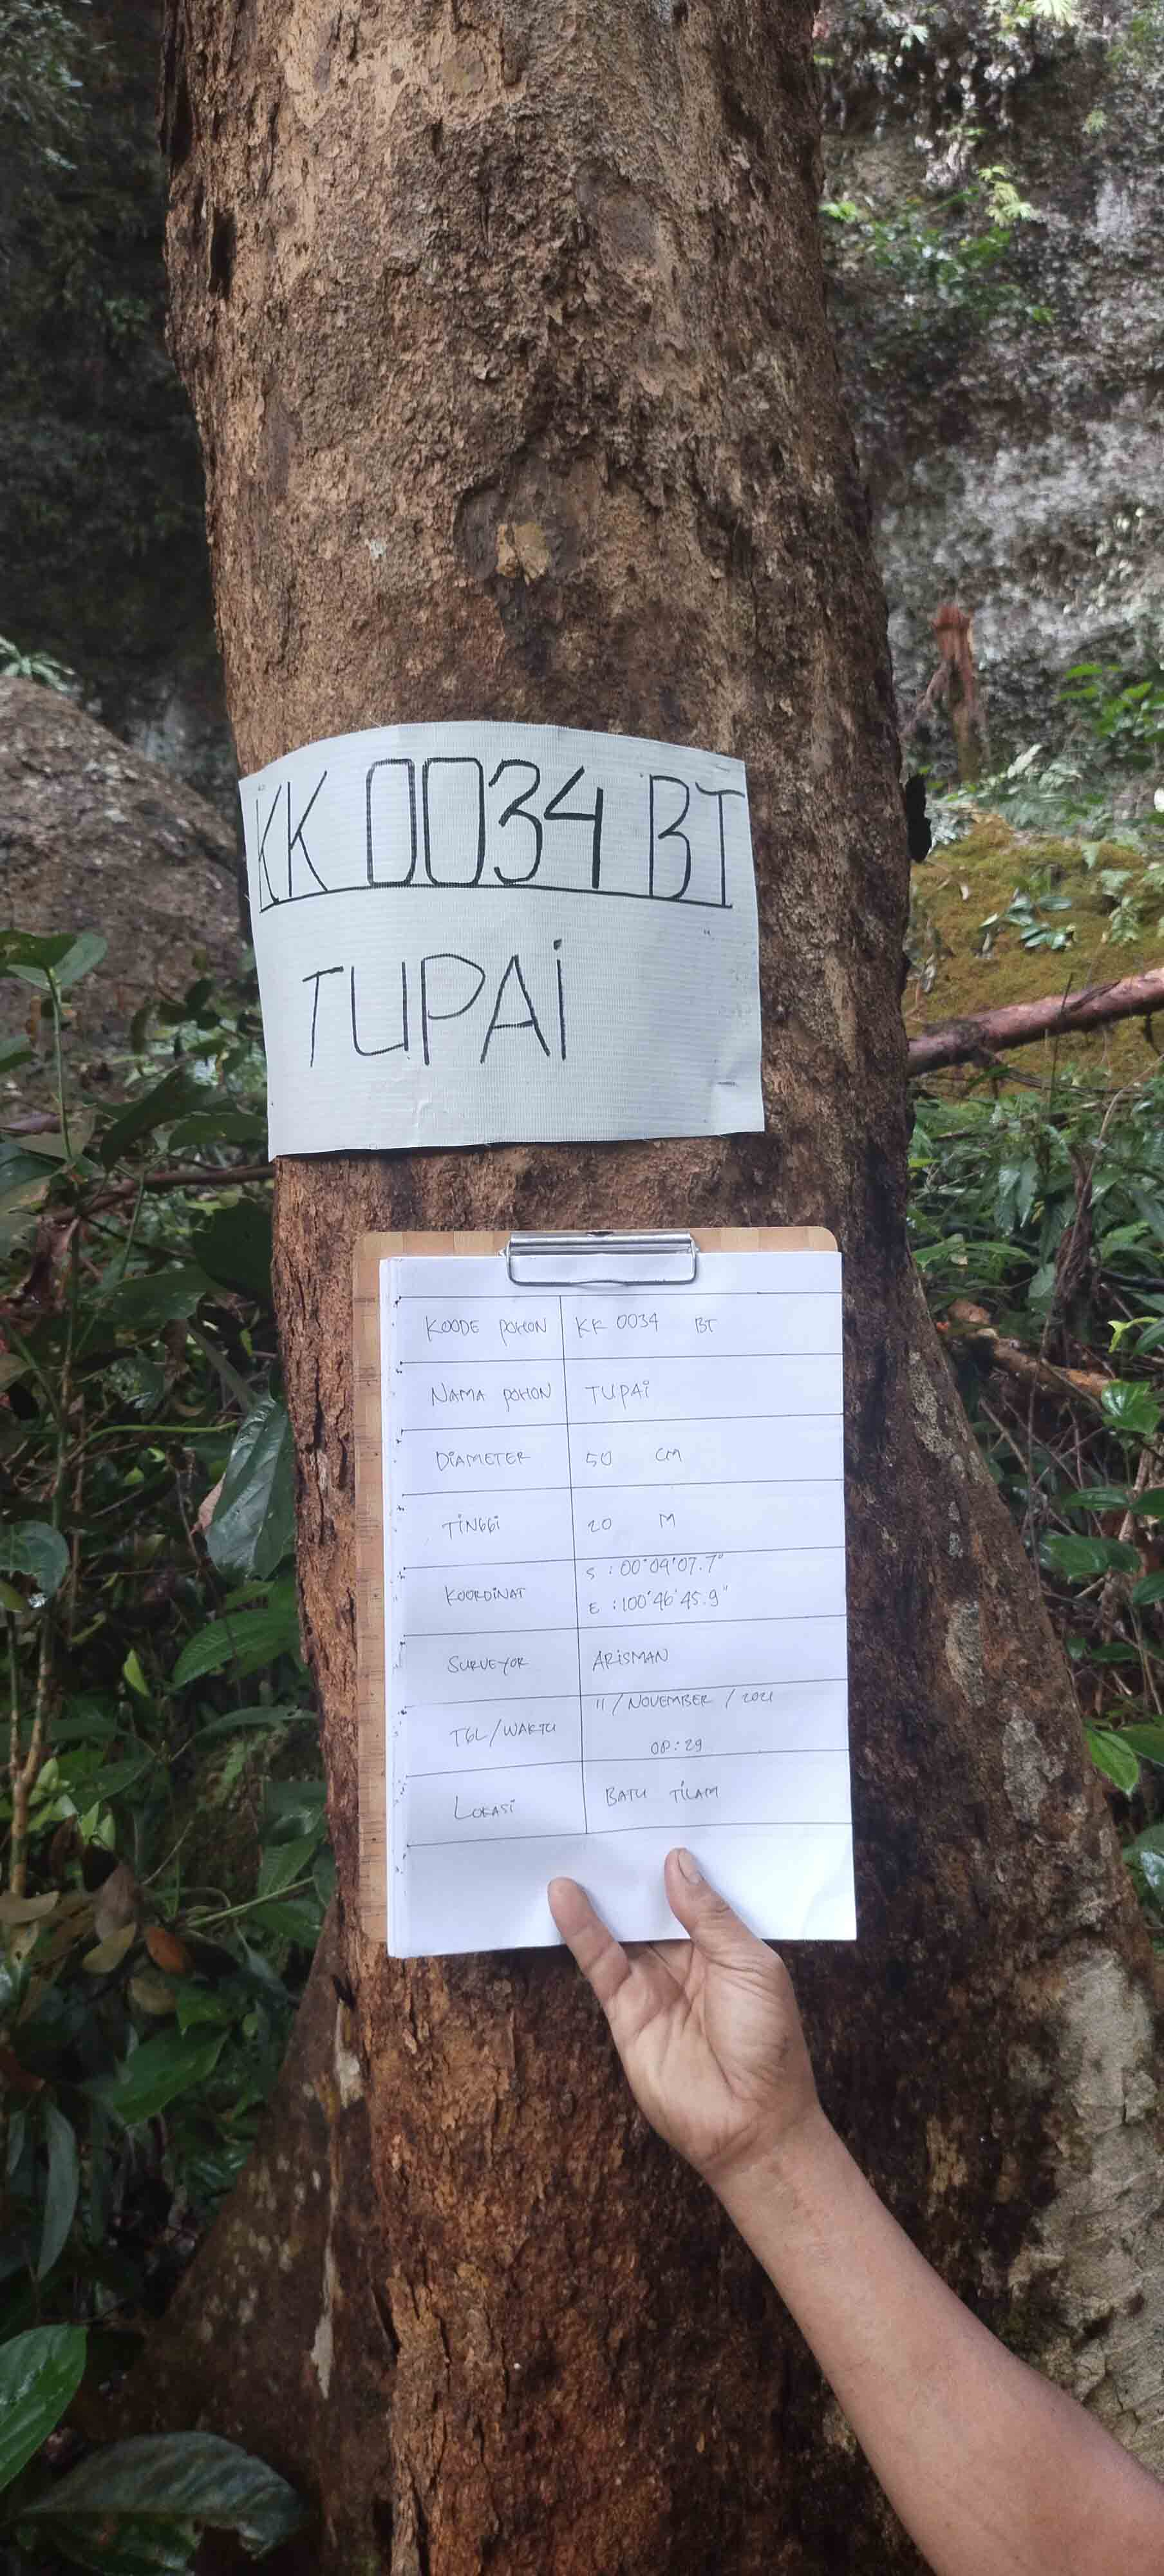 KK 0034 BT
TUPAi
KOODE POHON KK 0034 BT
NAMA POHON TUPAi
DiAMETER 50 CM
TiNGGi 20 M
KOORDiNAT S : 00°04'07.7"
E : 100°46'45.9"
SURVEYOR ARiSMAN
TGL/WAKTU 11/NOVEMBER/2021
09:29
LOKASi BATU TiLAM